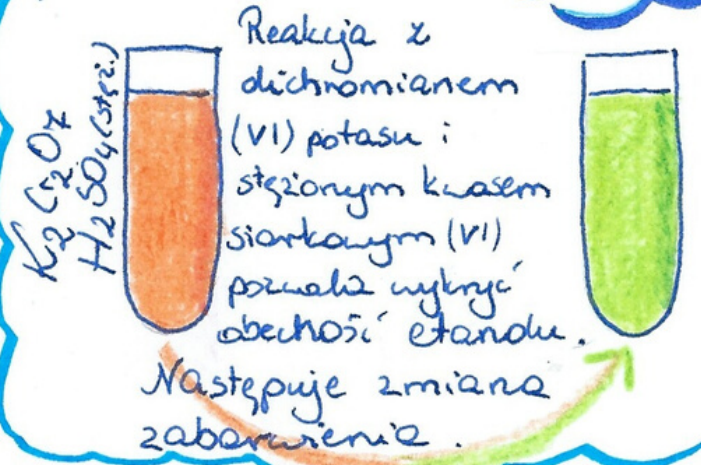 K2Cr2O7
H2SO4 (stęż.)
Reakcja z
dichromianem
(VI) potasu i
stężonym kwasem
siarkowym (VI)
pozwala wykryć
obecność etanolu.
Następuje zmiana
zabarwienia.